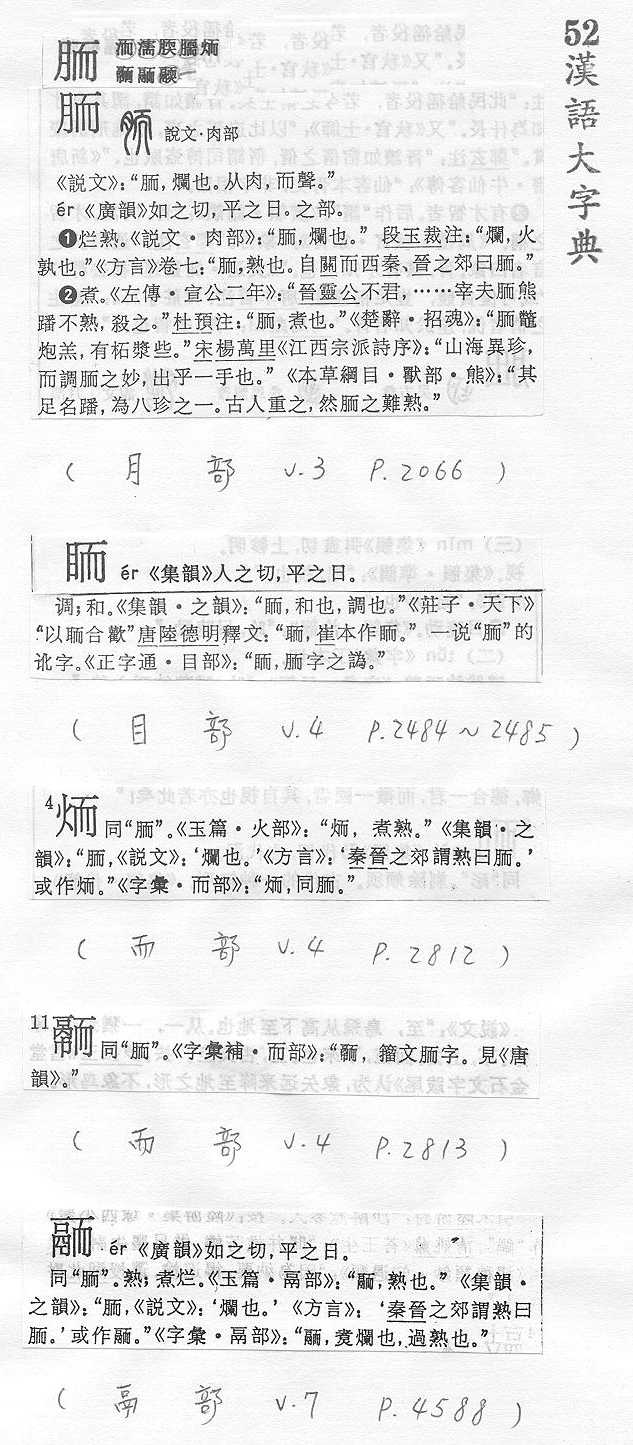 52漢語大字典
胹
胹 說文·肉部
《說文》：“胹，爛也。从肉，而聲。”
ér《廣韻》如之切，平之日。之部。
❶烂熟。《說文·肉部》：“胹，爛也。” 段玉裁注：“爛，火
孰也。”《方言》卷七：“胹，熟也。自關而西秦、晉之郊曰胹。”
❷煮。《左傳·宣公二年》：“晉靈公不君，……宰夫胹熊
蹯不熟，殺之。”杜預注：“胹，煮也。”《楚辭·招魂》：“胹鼈
炮羔，有柘漿些。”宋楊萬里《江西宗派詩序》：“山海異珍，
而調胹之妙，出乎一手也。” 《本草綱目·獸部·熊》：“其
足名蹯，為八珍之一。古人重之，然胹之難熟。”
（月 部 v.3 P.2066）
眲 ér《集韻》人之切，平之日。
调；和。《集韻·之韻》：“，和也，調也。”《莊子·天下》
“以聏合歡”唐陸德明釋文：“聏，崔本作。”一说“胹”的
讹字。《正字通·目部》：“，胹字之譌。”
（目 部 v.4 P.2484～2485）
4 炳 同“胹”。《玉篇·火部》：“，煮熟。” 《集韻·之
韻》：“胹，《說文》：‘爛也。’《方言》：‘秦晉之郊謂熟曰胹。’
或作。”《字彙·而部》：“，同胹。”
（而 部 v.4 P.2812）
11 同“胹”。《字彙補·而部》：“，籀文胹字。見《唐
韻》。”
（而 部 v.4 P.2813）
ér《廣韻》如之切，平之日。
同“胹”。熟；煮烂。《玉篇·鬲部》：“，熟也。” 《集韻·
之韻》：“胹，《說文》：‘爛也。’ 《方言》：‘秦晉之郊謂熟曰
胹。’或作。”《字彙·鬲部》：“，爛也，過熟也。”
（鬲 部 v.7 P.4588）